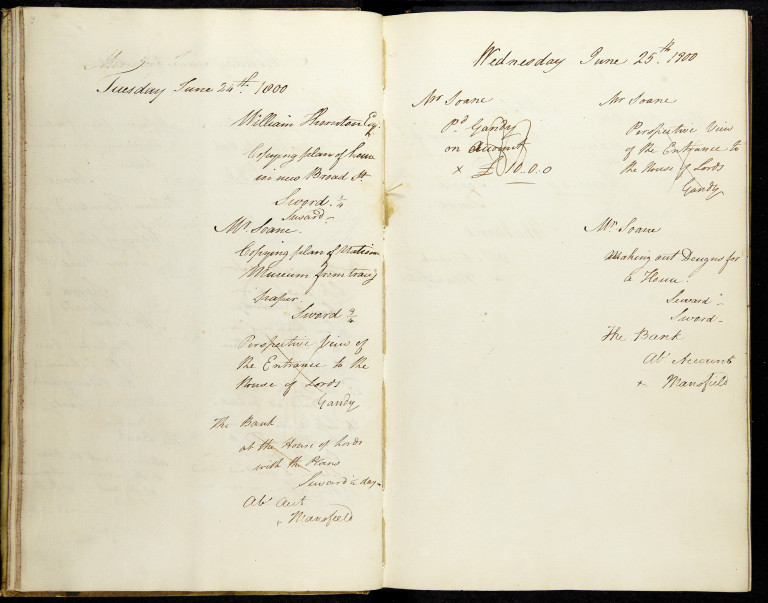 Tuesday June 24th. 1800
William Thornton Esq.
Copying plan of house
in new Broad St.
Sword. 1/4
Seward -
Mr. Soane.
Copying plan of
Museum from tracg
paper.
Sword 3/4
Perspective View of
the Entrance to the
House of Lords
Gandy
The Bank
at the House of Lords
with the Plans
Seward 1/2 day -
Abt Acct
Mansfield
Wednesday June 25th. 1800
Mr Soane
Pd Gandy
on Account
x £ 10..0..0
Mr Soane
Perspective View
of the Entrance to
the House of Lords
Gandy
Mr Soane
Making out Designs for
a House.
Seward -
Sword -
The Bank
Abt Accounts
x Mansfield